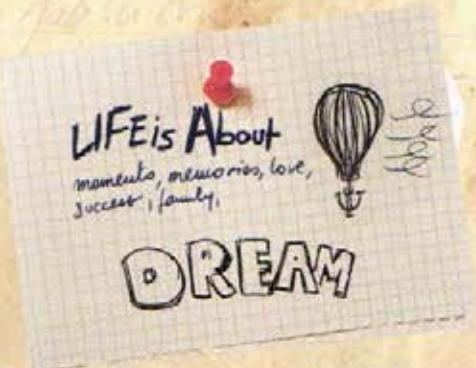 LIFE is About
moments, memories, love,
success, family,
DREAM